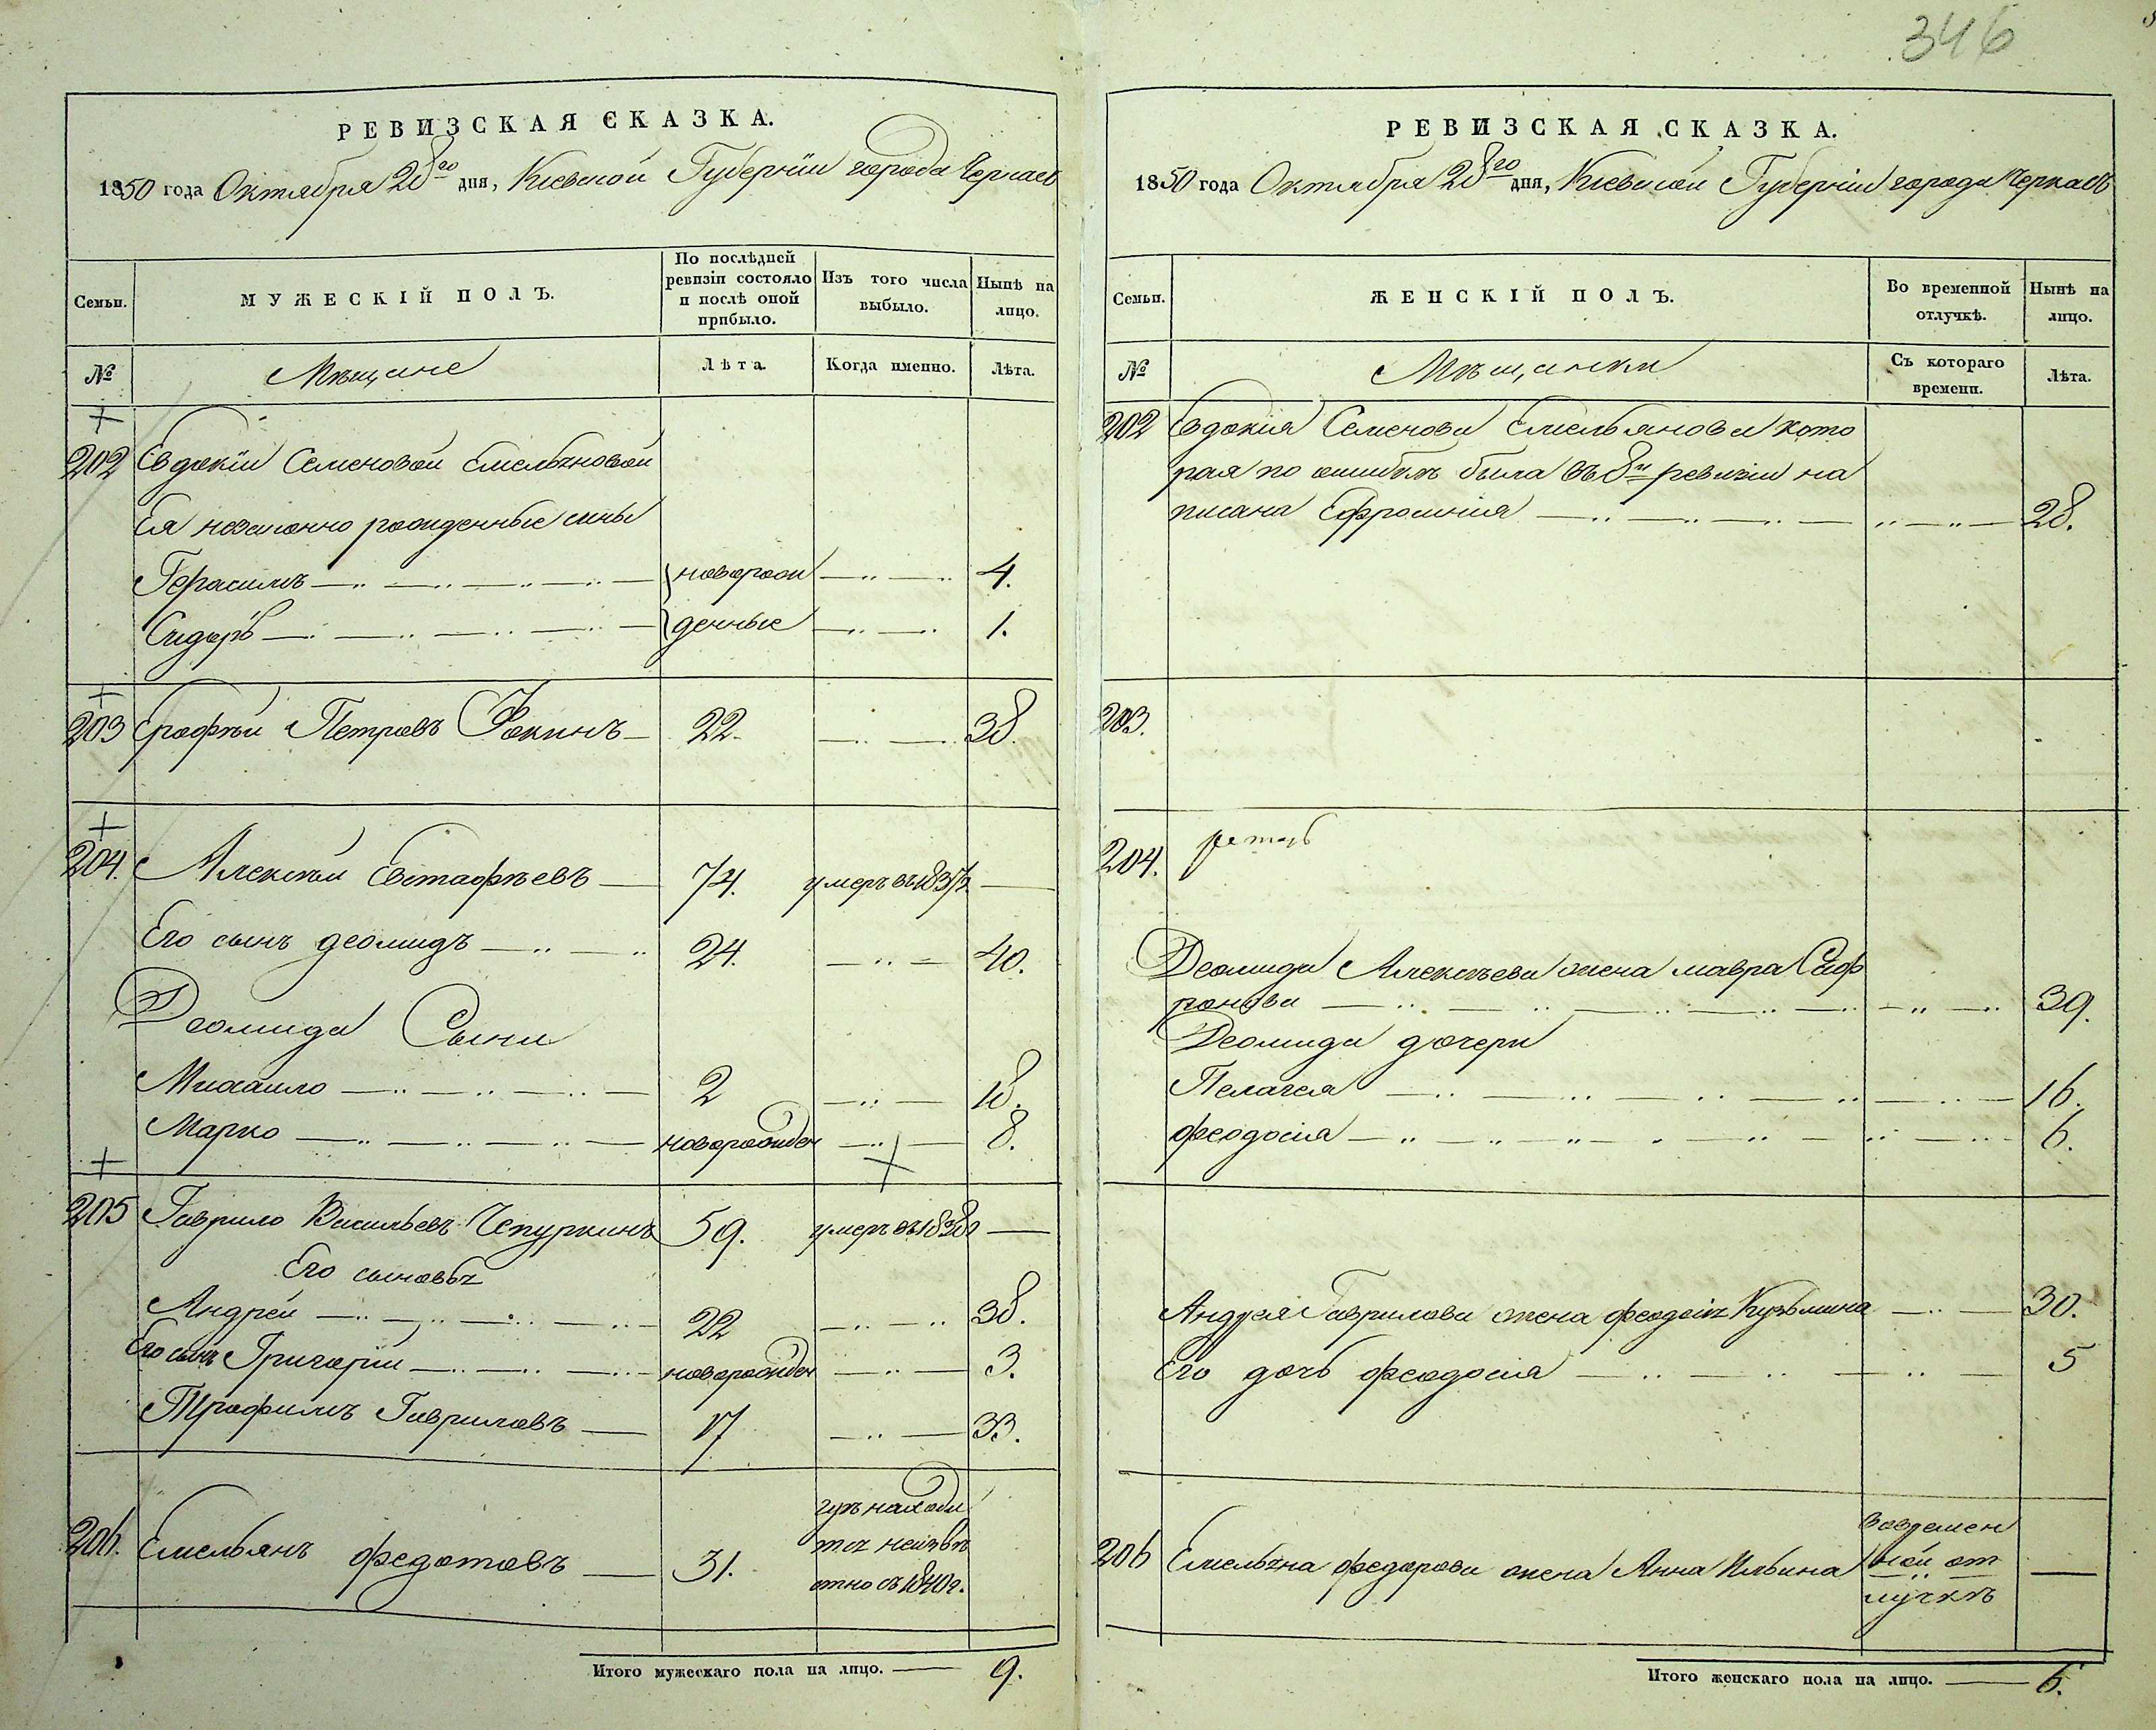 346
РЕВИЗСКАЯ СКАЗКА.
1850 года Октября 28го дня, Кіевской Губерніи города Черкасъ
Семьи.
МУЖЕСКІЙ ПОЛЪ.
По послѣдней ревизіи состояло и послѣ оной прибыло.
Изъ того числа выбыло.
Нынѣ на лицо.
№
Мѣщане
Лѣта.
Когда именно.
Лѣта.
202 Евдокіи Семеновой Емельяновой
Ея незаконно рожденные сыны
Герасимъ новорож 4.
Сидоръ денные 1.
203 Ерофѣй Петровъ Фокинъ 22 38.
204. Алексѣй Евстафѣевъ 74. умеръ въ 1837г.
Его сынъ Деомидъ 24. 40.
Деомида Сыны
Михаило 2 18.
Марко новорожден 8.
205 Гаврило Васильевъ Чепуркинъ 59. умеръ въ 1838г
Его сыновья
Андрей 22 38.
Его сынъ Григорій новорожден 3.
Трофимъ Гавриловъ 17 33.
206. Емельянъ Федотовъ 31. гдѣ находи
тся неизвѣ
стно съ 1840г.
Итого мужескаго пола на лицо. 9.
РЕВИЗСКАЯ СКАЗКА.
1850 года Октября 28го дня, Кіевской Губерніи города Черкасъ
Семьи.
ЖЕНСКІЙ ПОЛЪ.
Во временной отлучкѣ.
Нынѣ на лицо.
№
Мѣщанки
Съ котораго времени.
Лѣта.
202 Евдокія Семенова Емельянова кото
рая по ошибкѣ была въ 8й ревизіи на
писана Ефросинія 28.
203.
204.
Деомида Алексѣева жена Мавра Саф
ронова 39.
Деомида дочери
Пелагея 16.
Феодосія 6.
Андрея Гаврилова жена Феодосія Кузьмина 30.
Его дочь Феодосія 5
206 Емельяна Федорова жена Анна Ильина вовремен
ной от
лучкѣ
Итого женскаго пола на лицо. 6.